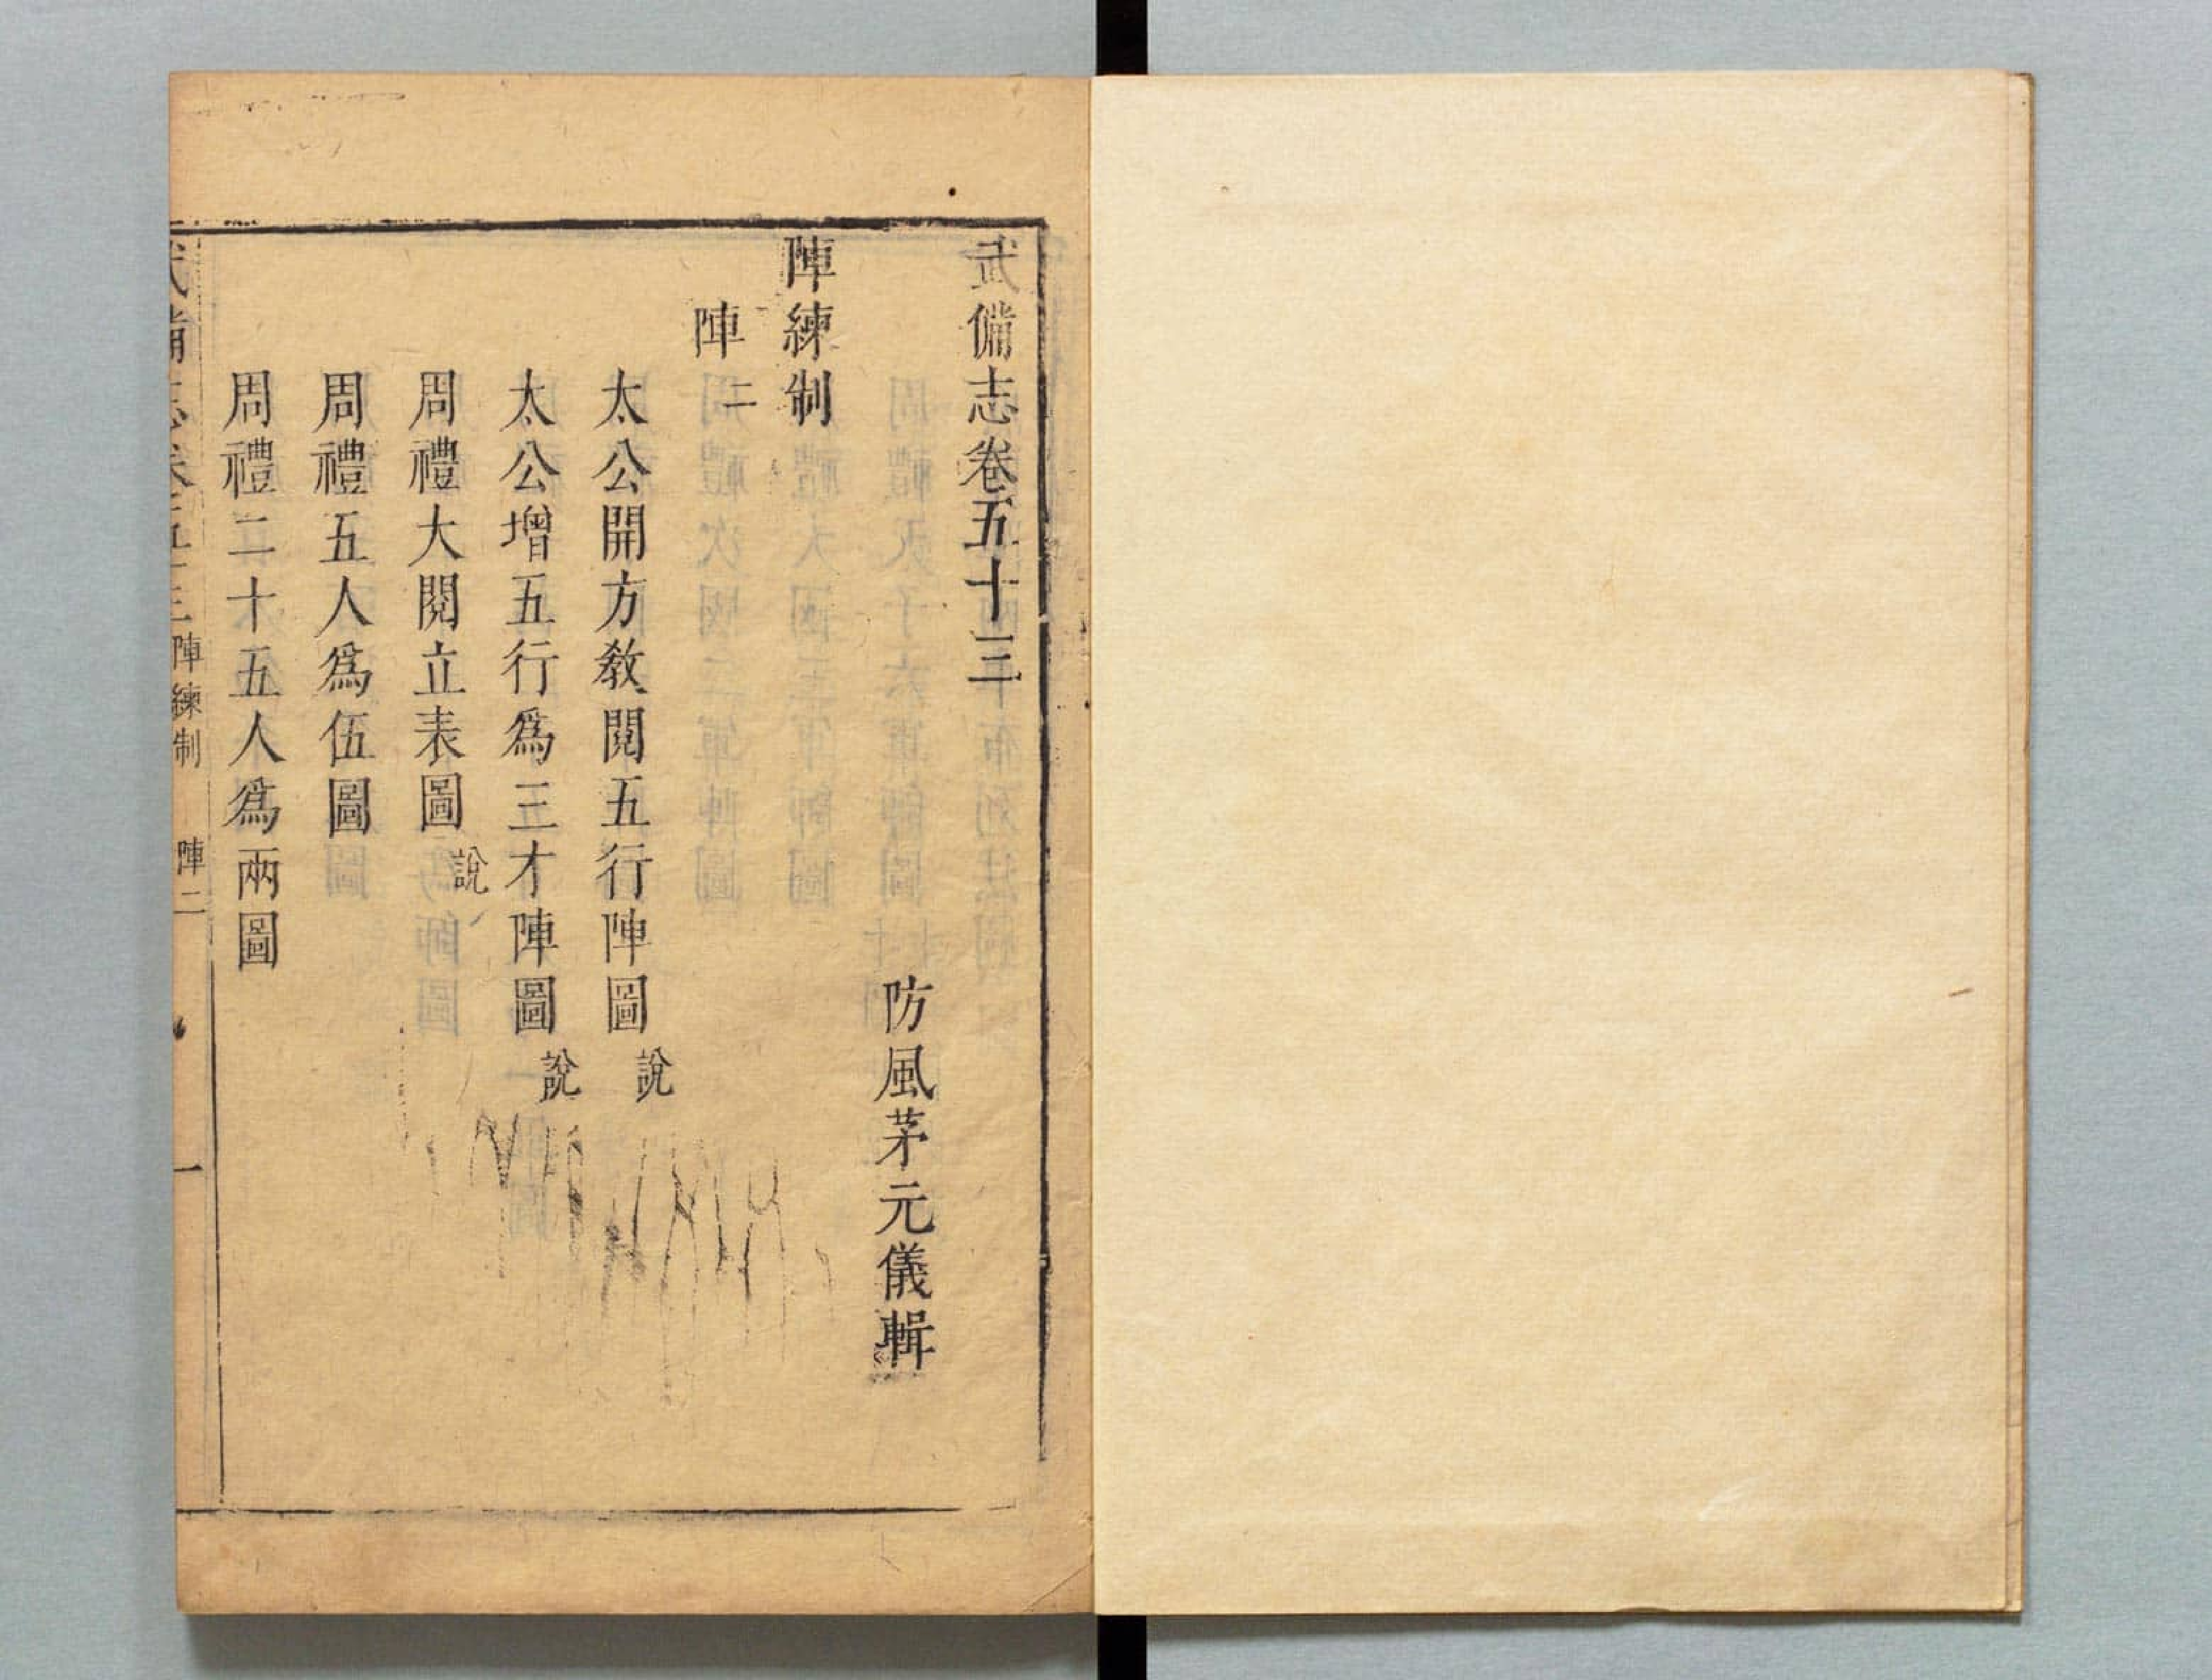 武備志卷五十三
防風茅元儀輯
陣練制
陣二
太公開方教閱五行陣圖 說
太公增五行為三才陣圖 說
周禮大閱立表圖 說
周禮五人爲伍圖
周禮二十五人爲兩圖
武備志卷五十三 陣練制 陣二 一